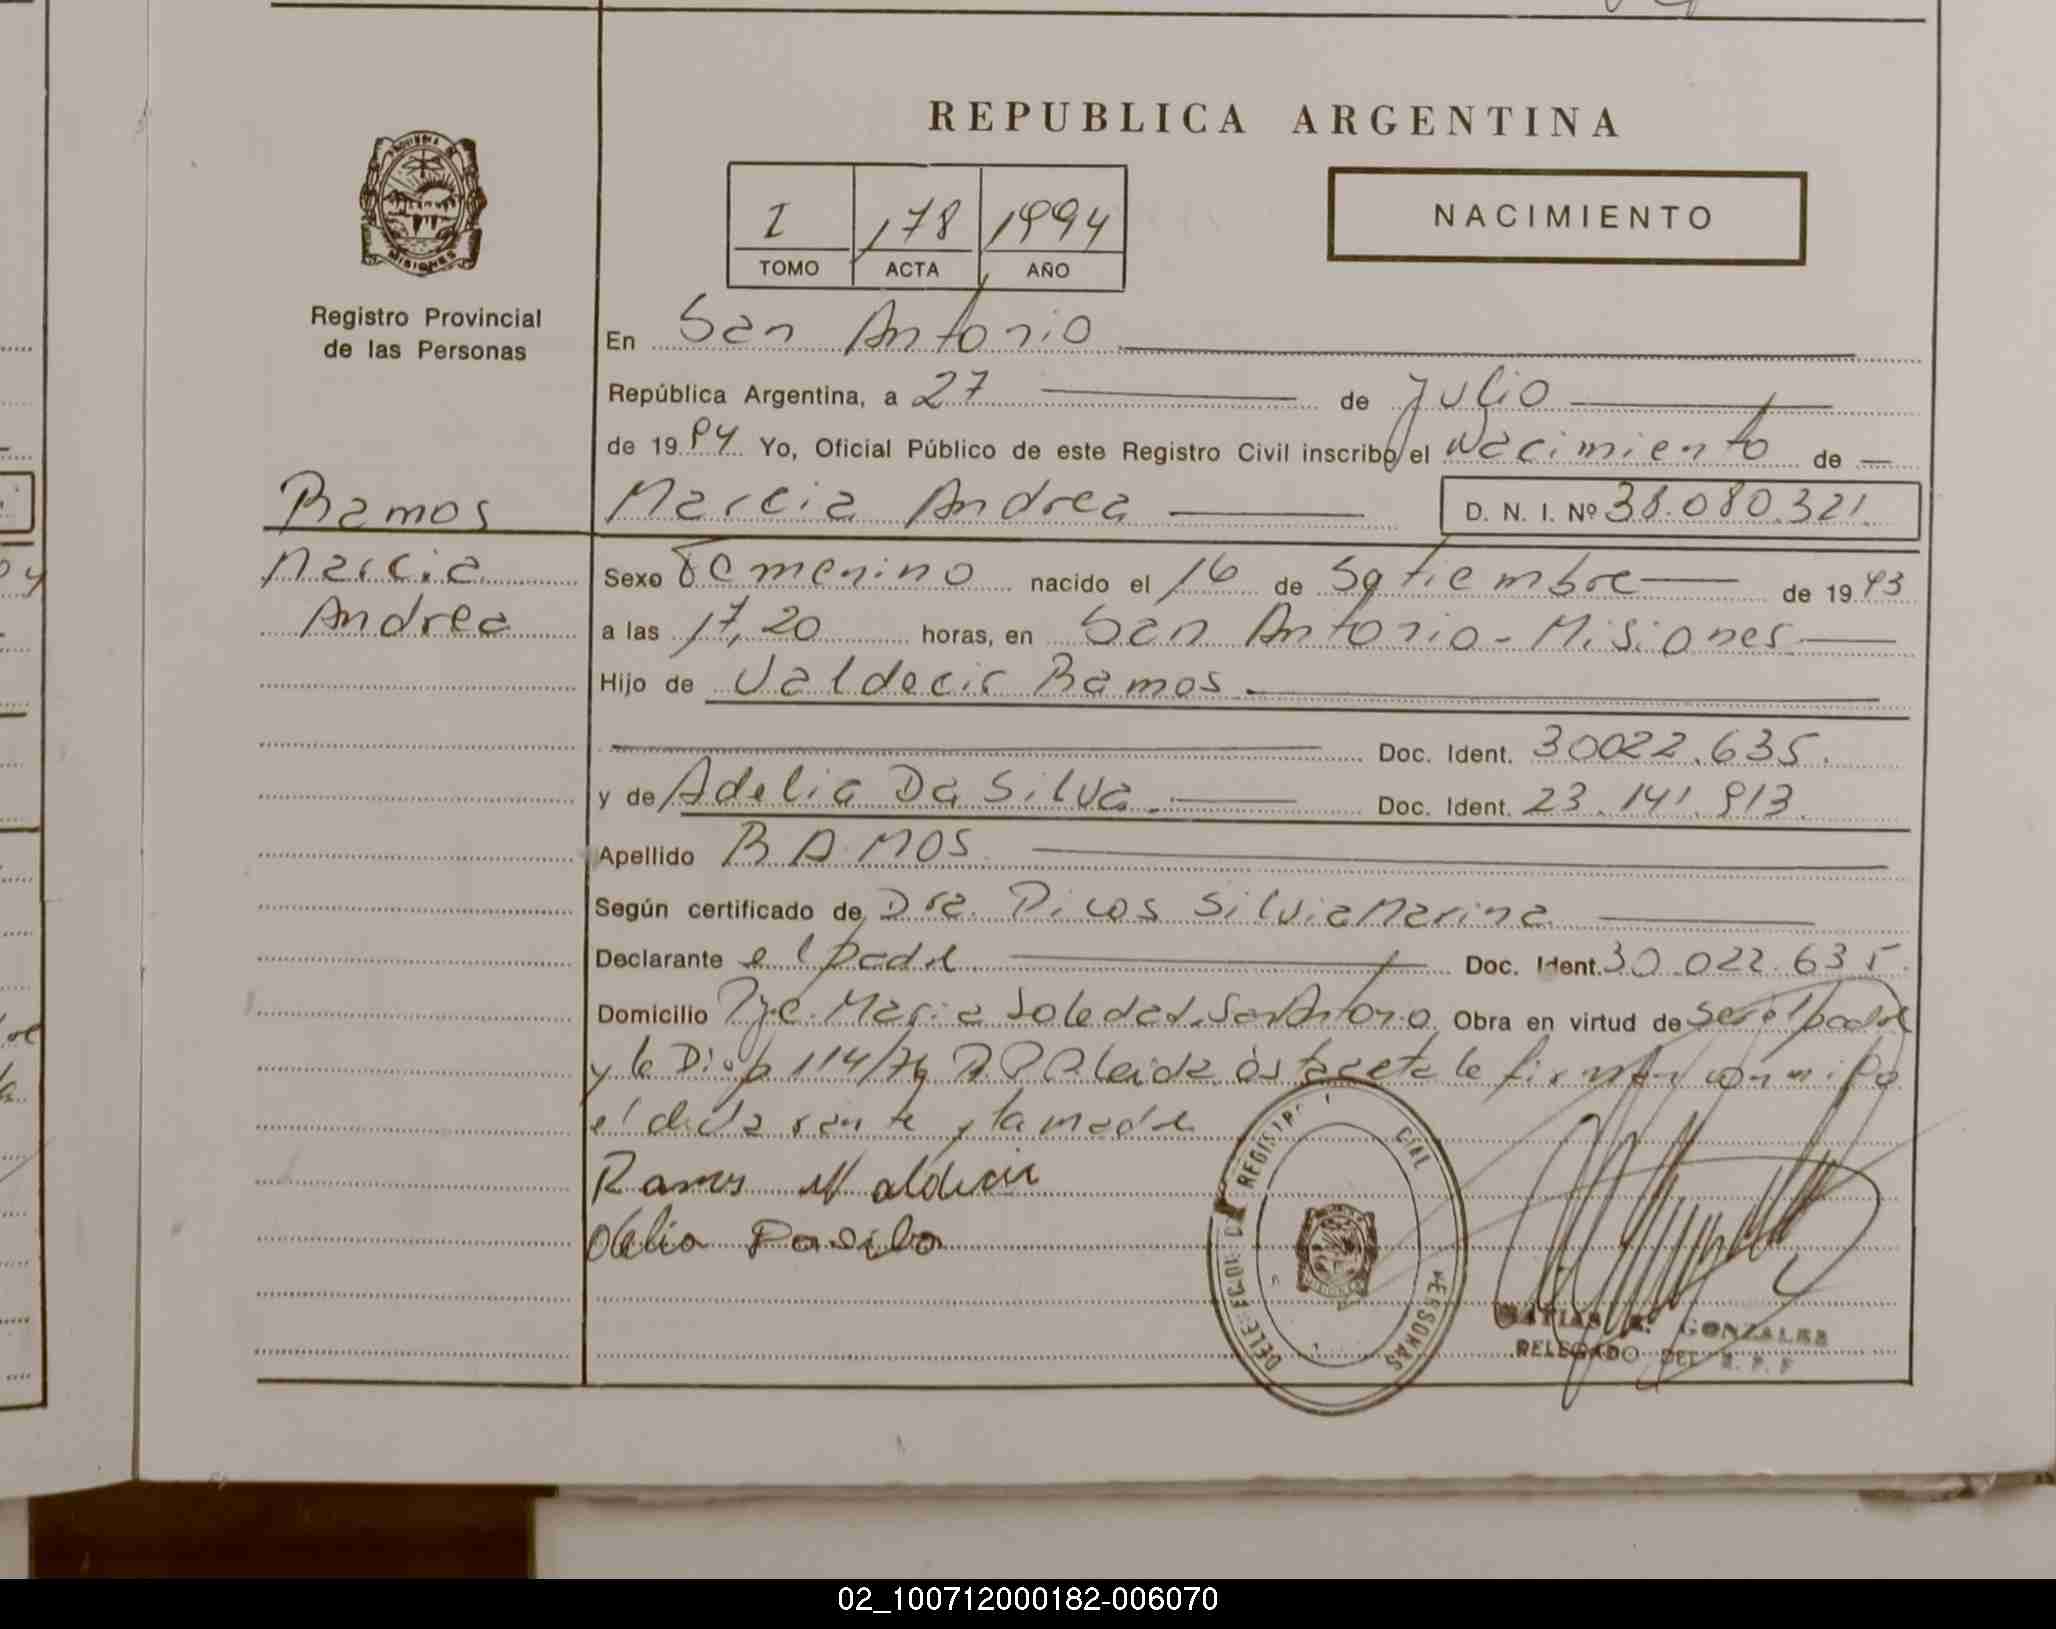 REPUBLICA ARGENTINA
I 178 1994
TOMO ACTA AÑO
NACIMIENTO
PROVINCIA DE
MISIONES
Registro Provincial
de las Personas
En San Antonio
República Argentina, a 27 de Julio
de 1994 Yo, Oficial Público de este Registro Civil inscribo el Nacimiento de
Ramos
Marcia Andrea D. N. I. Nº 38.080.321
Marcia
Andrea
Sexo Femenino nacido el 16 de Setiembre de 1993
a las 17,20 horas, en San Antonio - Misiones
Hijo de Valdecir Ramos
Doc. Ident. 30022.635.
y de Adelia Da Silva Doc. Ident. 23.141.913.
Apellido RAMOS
Según certificado de Dra. Silvia Marina
Declarante el padre Doc. Ident. 30.022.635
Domicilio Pje. Maria Soledad. San Antonio Obra en virtud de ser el padre
y la Disp 114/76 Leida esta acta la firman conmigo
el declarante y la madre
Ramos Valdecir
Delia Dasilva
REGISTRO PERSONAS
GONZALES
DELEGADO DEL R. P. P
02_100712000182-006070